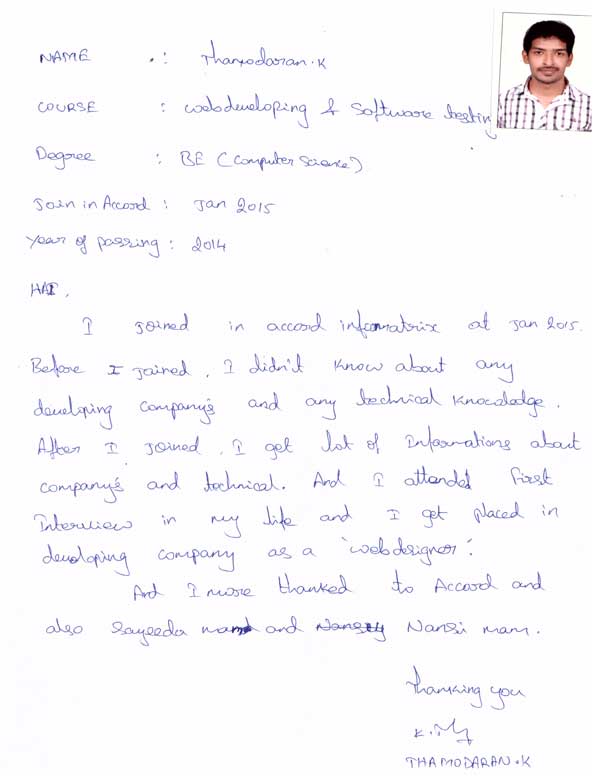 NAME : Thamodaran.K
COURSE : Webdeveloping & Software testing
Degree : BE (Computer Science)
Join in Accord : Jan 2015
Year of passing : 2014
HAI,
I Joined in accord informatrix at Jan 2015.
Before I Joined, I didn't know about any
developing company's and any technical knowledge.
After I Joined, I get lot of Informations about
company's and technical. And I attended First
Interview in my life and I get placed in
developing company as a 'webdesigner'.
And I more thanked to Accord and
also Sayeeda mam and Nansy Nansi mam.
Thanking you
THAMODARAN.K